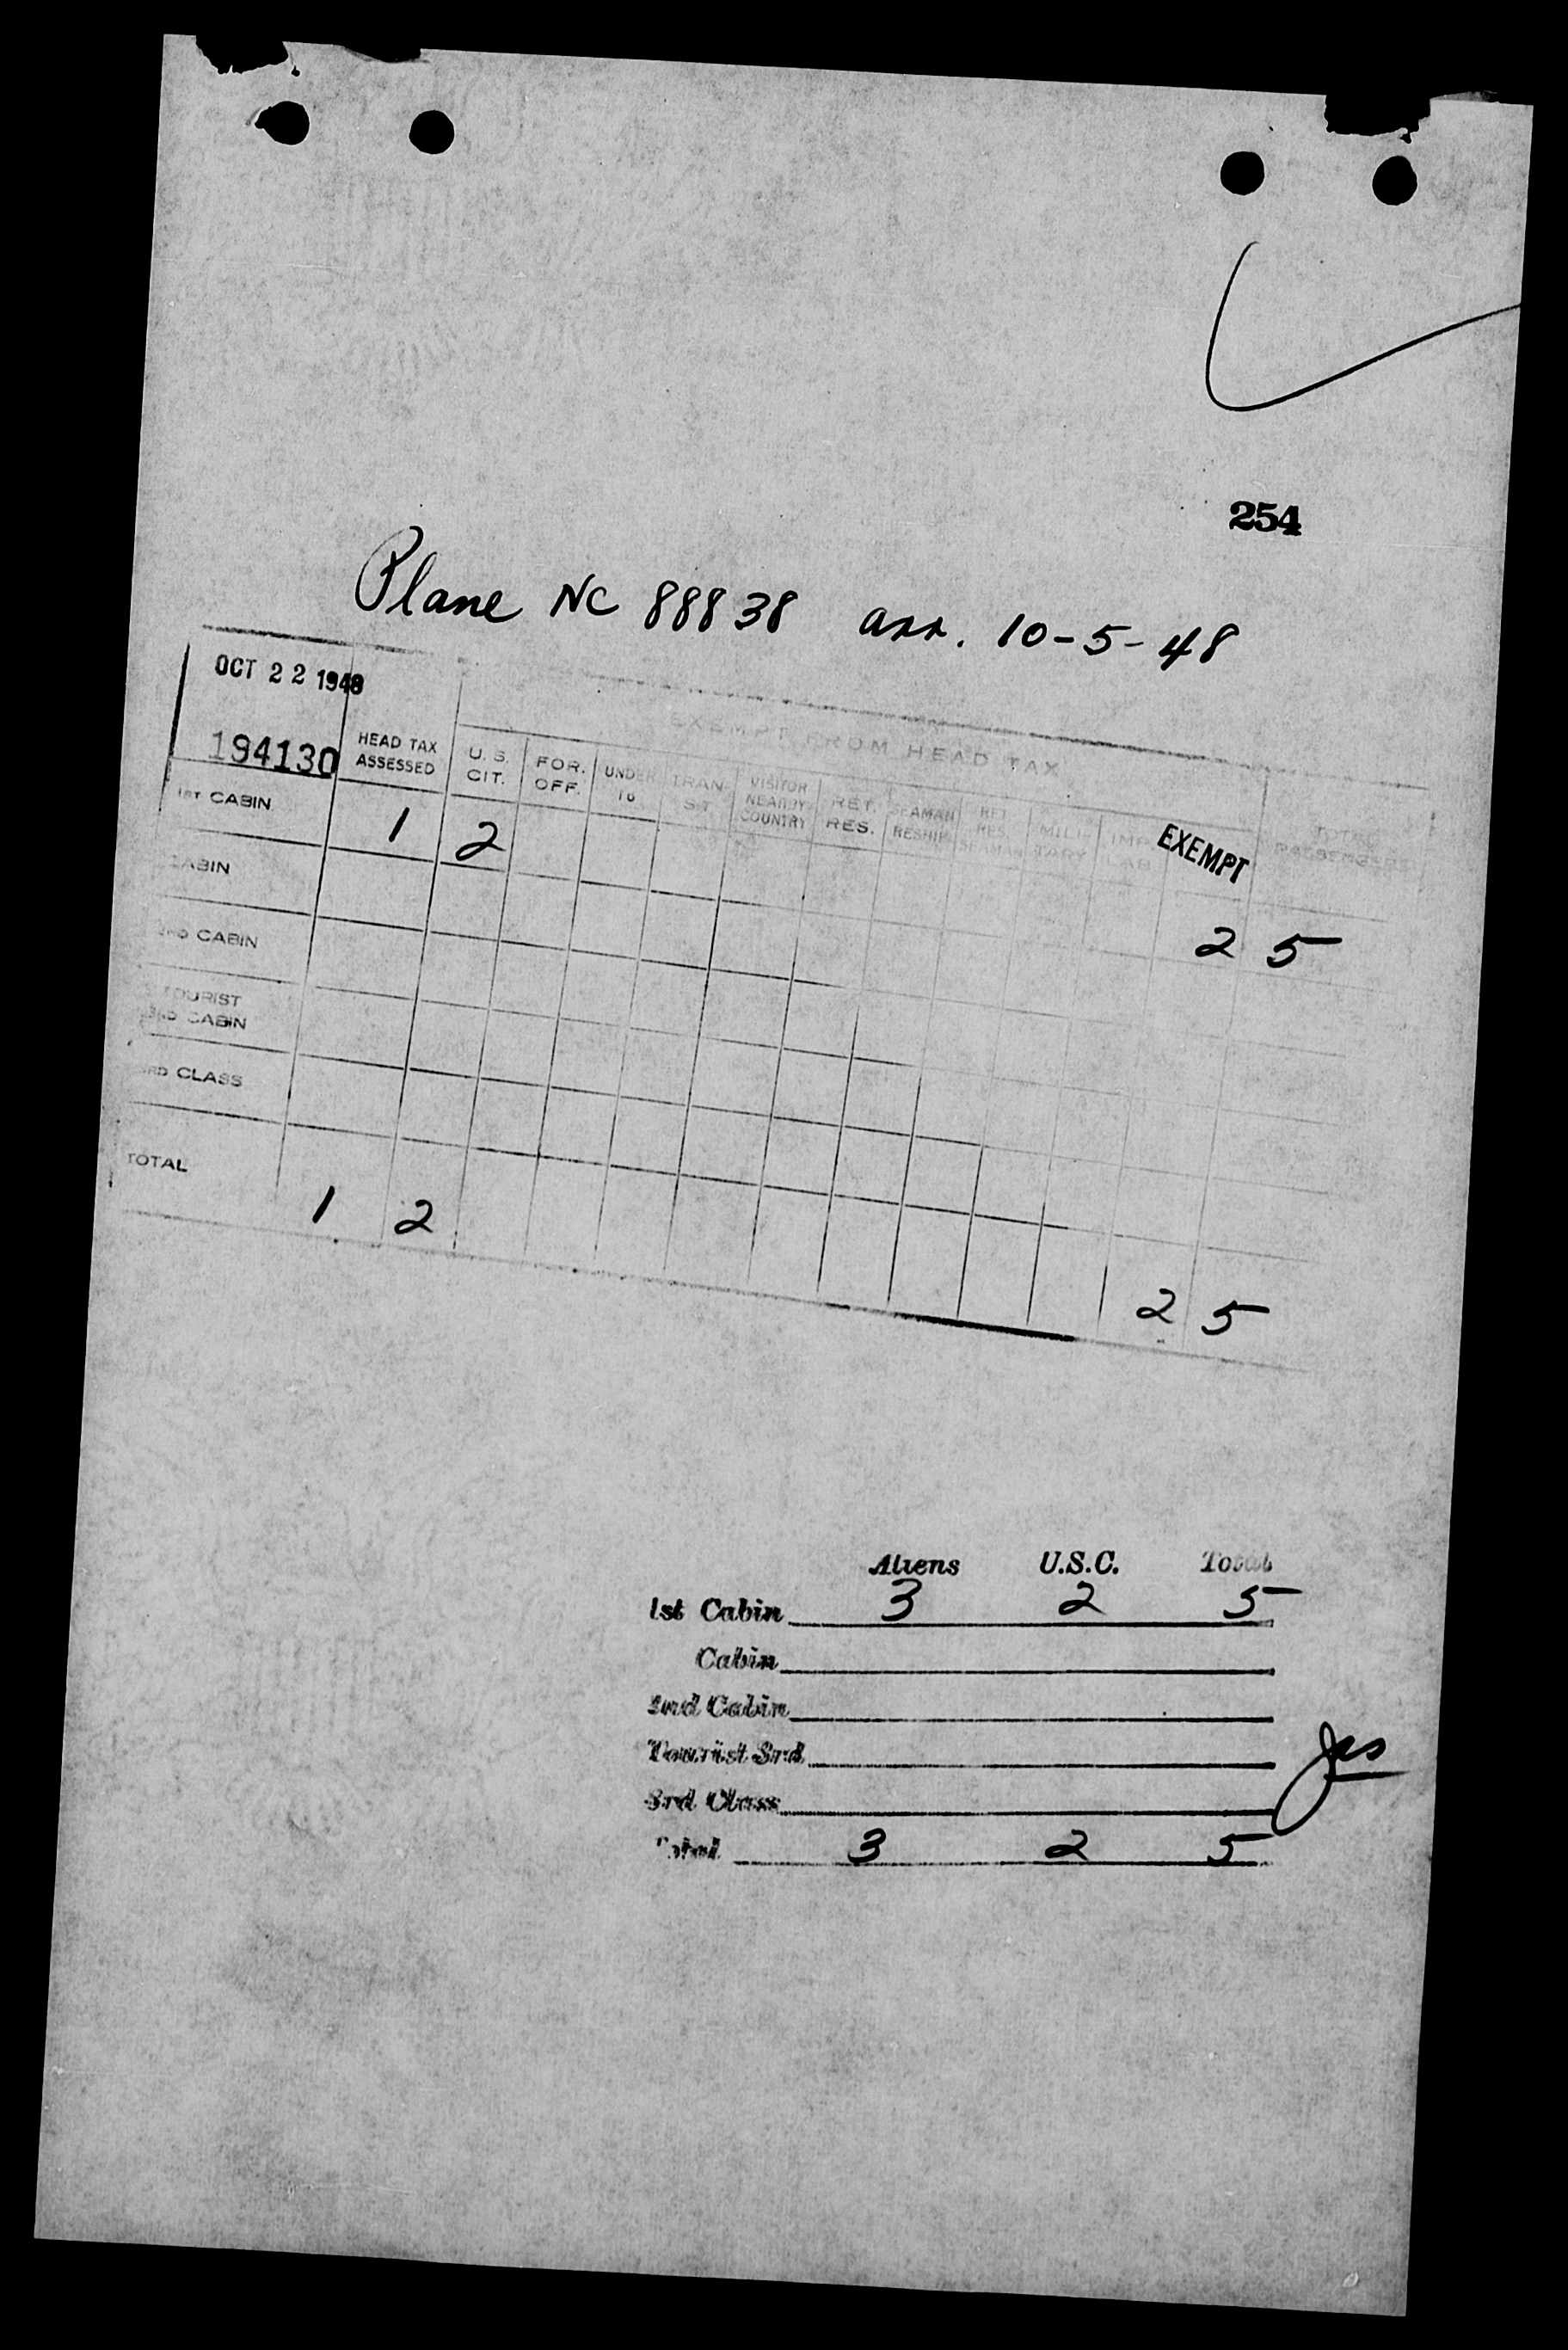 254
Plane NC 88838 arr. 10-5-48
OCT 22 1948
194130
EXEMPT FROM HEAD TAX
HEAD TAX ASSESSED U.S. CIT. FOR. OFF. UNDER 16 TRAN- SIT VISITOR NEARBY COUNTRY RET. RES. SEAMAN RESHIP RET. RES. SEAMAN MILI- TARY IMP LAB EXEMPT TOTAL PASSENGERS
1ST CABIN 1 2 2 5
CABIN
2ND CABIN
TOURIST
3RD CABIN
3RD CLASS
TOTAL 1 2 2 5
Aliens U.S.C. Total
1st Cabin 3 2 5
Cabin
2nd Cabin
Tourist 3rd
3rd Class
Total 3 2 5